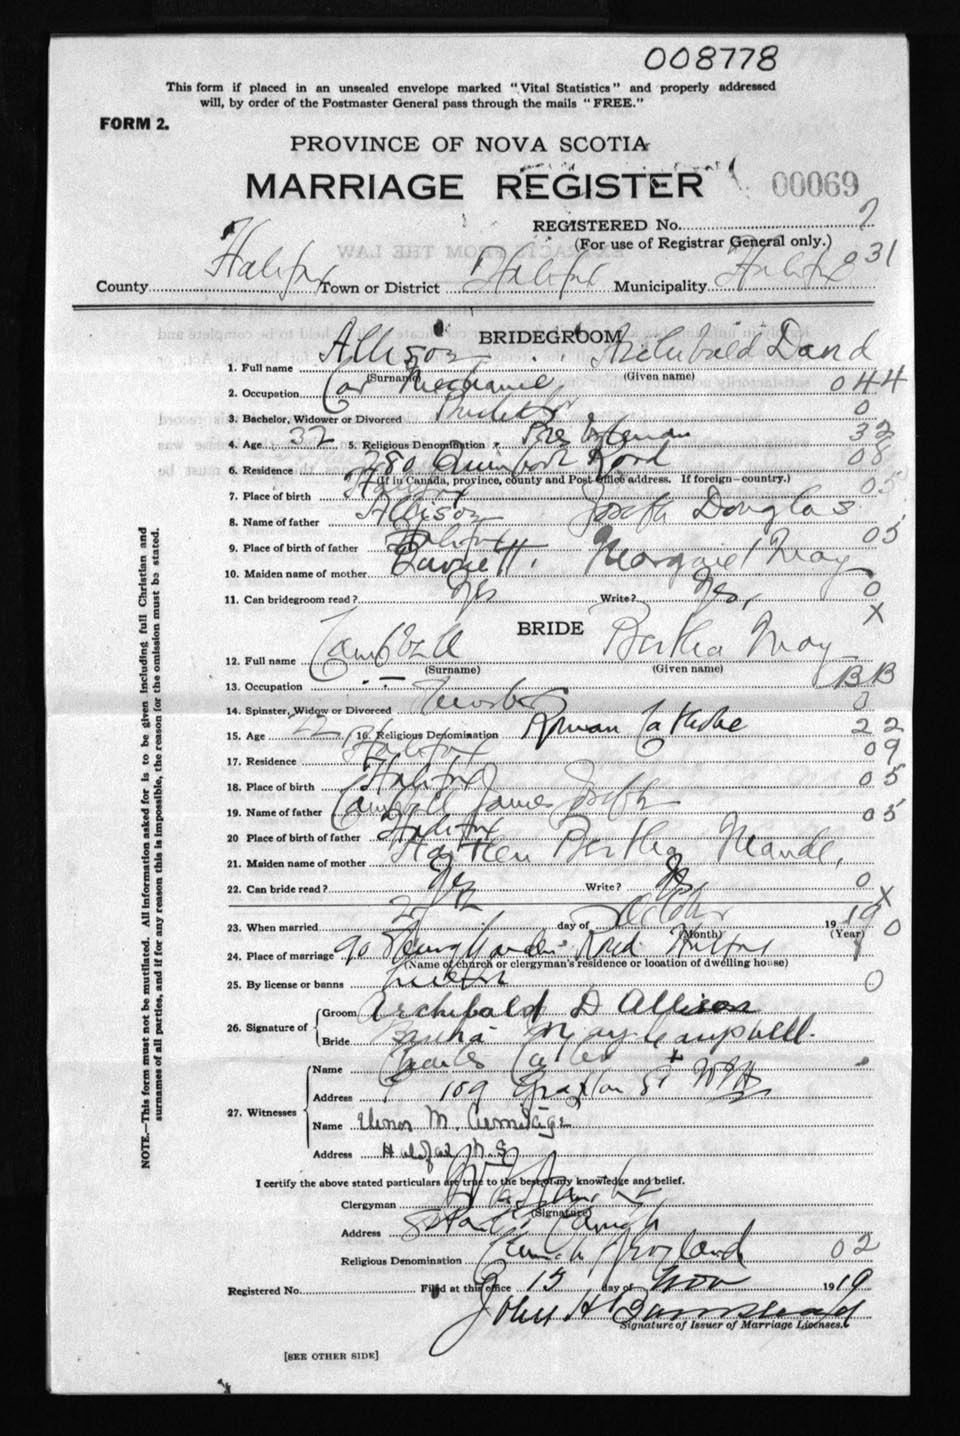 008778
This form if placed in an unsealed envelope marked "Vital Statistics" and properly addressed
will, by order of the Postmaster General pass through the mails "FREE."
FORM 2.
PROVINCE OF NOVA SCOTIA
MARRIAGE REGISTER 00069
REGISTERED No. 7
(For use of Registrar General only.)
031
County Halifax Town or District Halifax Municipality Halifax
BRIDEGROOM
1. Full name Allison Archibald David
(Surname) (Given name)
2. Occupation Car Mechanic 044
3. Bachelor, Widower or Divorced Bachelor 0
4. Age 32 5. Religious Denomination Presbyterian 32
6. Residence 280 Road 08
(If in Canada, province, county and Post Office address. If foreign—country.)
7. Place of birth Halifax 05
8. Name of father Allison Joseph Douglas
9. Place of birth of father Halifax 05
10. Maiden name of mother Barnett. Margaret May
11. Can bridegroom read? Yes Write? Yes, 0
X
BRIDE
12. Full name Campbell Bertha May
(Surname) (Given name)
13. Occupation BB
14. Spinster, Widow or Divorced 0
15. Age 22 16. Religious Denomination Roman Catholic 22
17. Residence Halifax 09
18. Place of birth Halifax 05
19. Name of father Campbell James Joseph
20 Place of birth of father Halifax 05
21. Maiden name of mother Bertha Maude,
22. Can bride read? Yes Write? Yes 0
X
23. When married day of October 1919 0
(Month) (Year)
24. Place of marriage 90 Road Halifax
(Name of church or clergyman's residence or location of dwelling house)
25. By license or banns 0
26. Signature of Groom Archibald D Allison
Bride Bertha May Campbell.
27. Witnesses
Name Charles
Address 109 Grafton St
Name M. Armitage
Address Halifax N.S
I certify the above stated particulars are true to the best of my knowledge and belief.
Clergyman
(Signature)
Address
Religious Denomination Church of England 02
Registered No. Filed at this office 15 day of Nov 1919
John H Barnstead
Signature of Issuer of Marriage Licenses.
[SEE OTHER SIDE]
NOTE.—This form must not be mutilated. All information asked for is to be given including full Christian and
surnames of all parties, and if for any reason this is impossible, the reason for the omission must be stated.